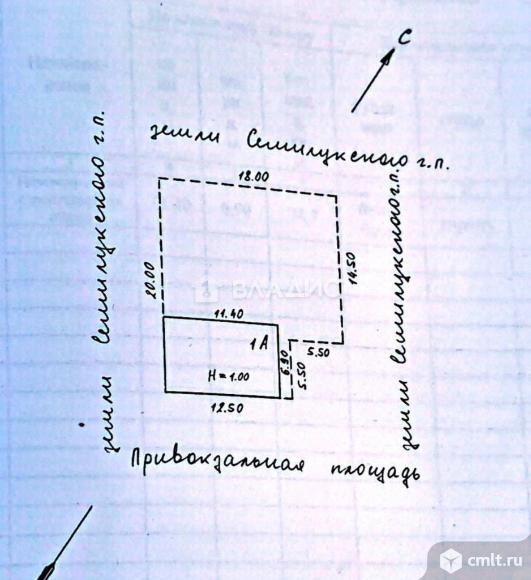 С
земли Семилукского г.п.
земли Семилукского г.п.
земли Семилукского г.п.
18.00
20.00
14.50
ВЛАДИС
11.40
1А
6.90
5.50
5.50
H=1.00
12.50
Привокзальная площадь
cmlt.ru